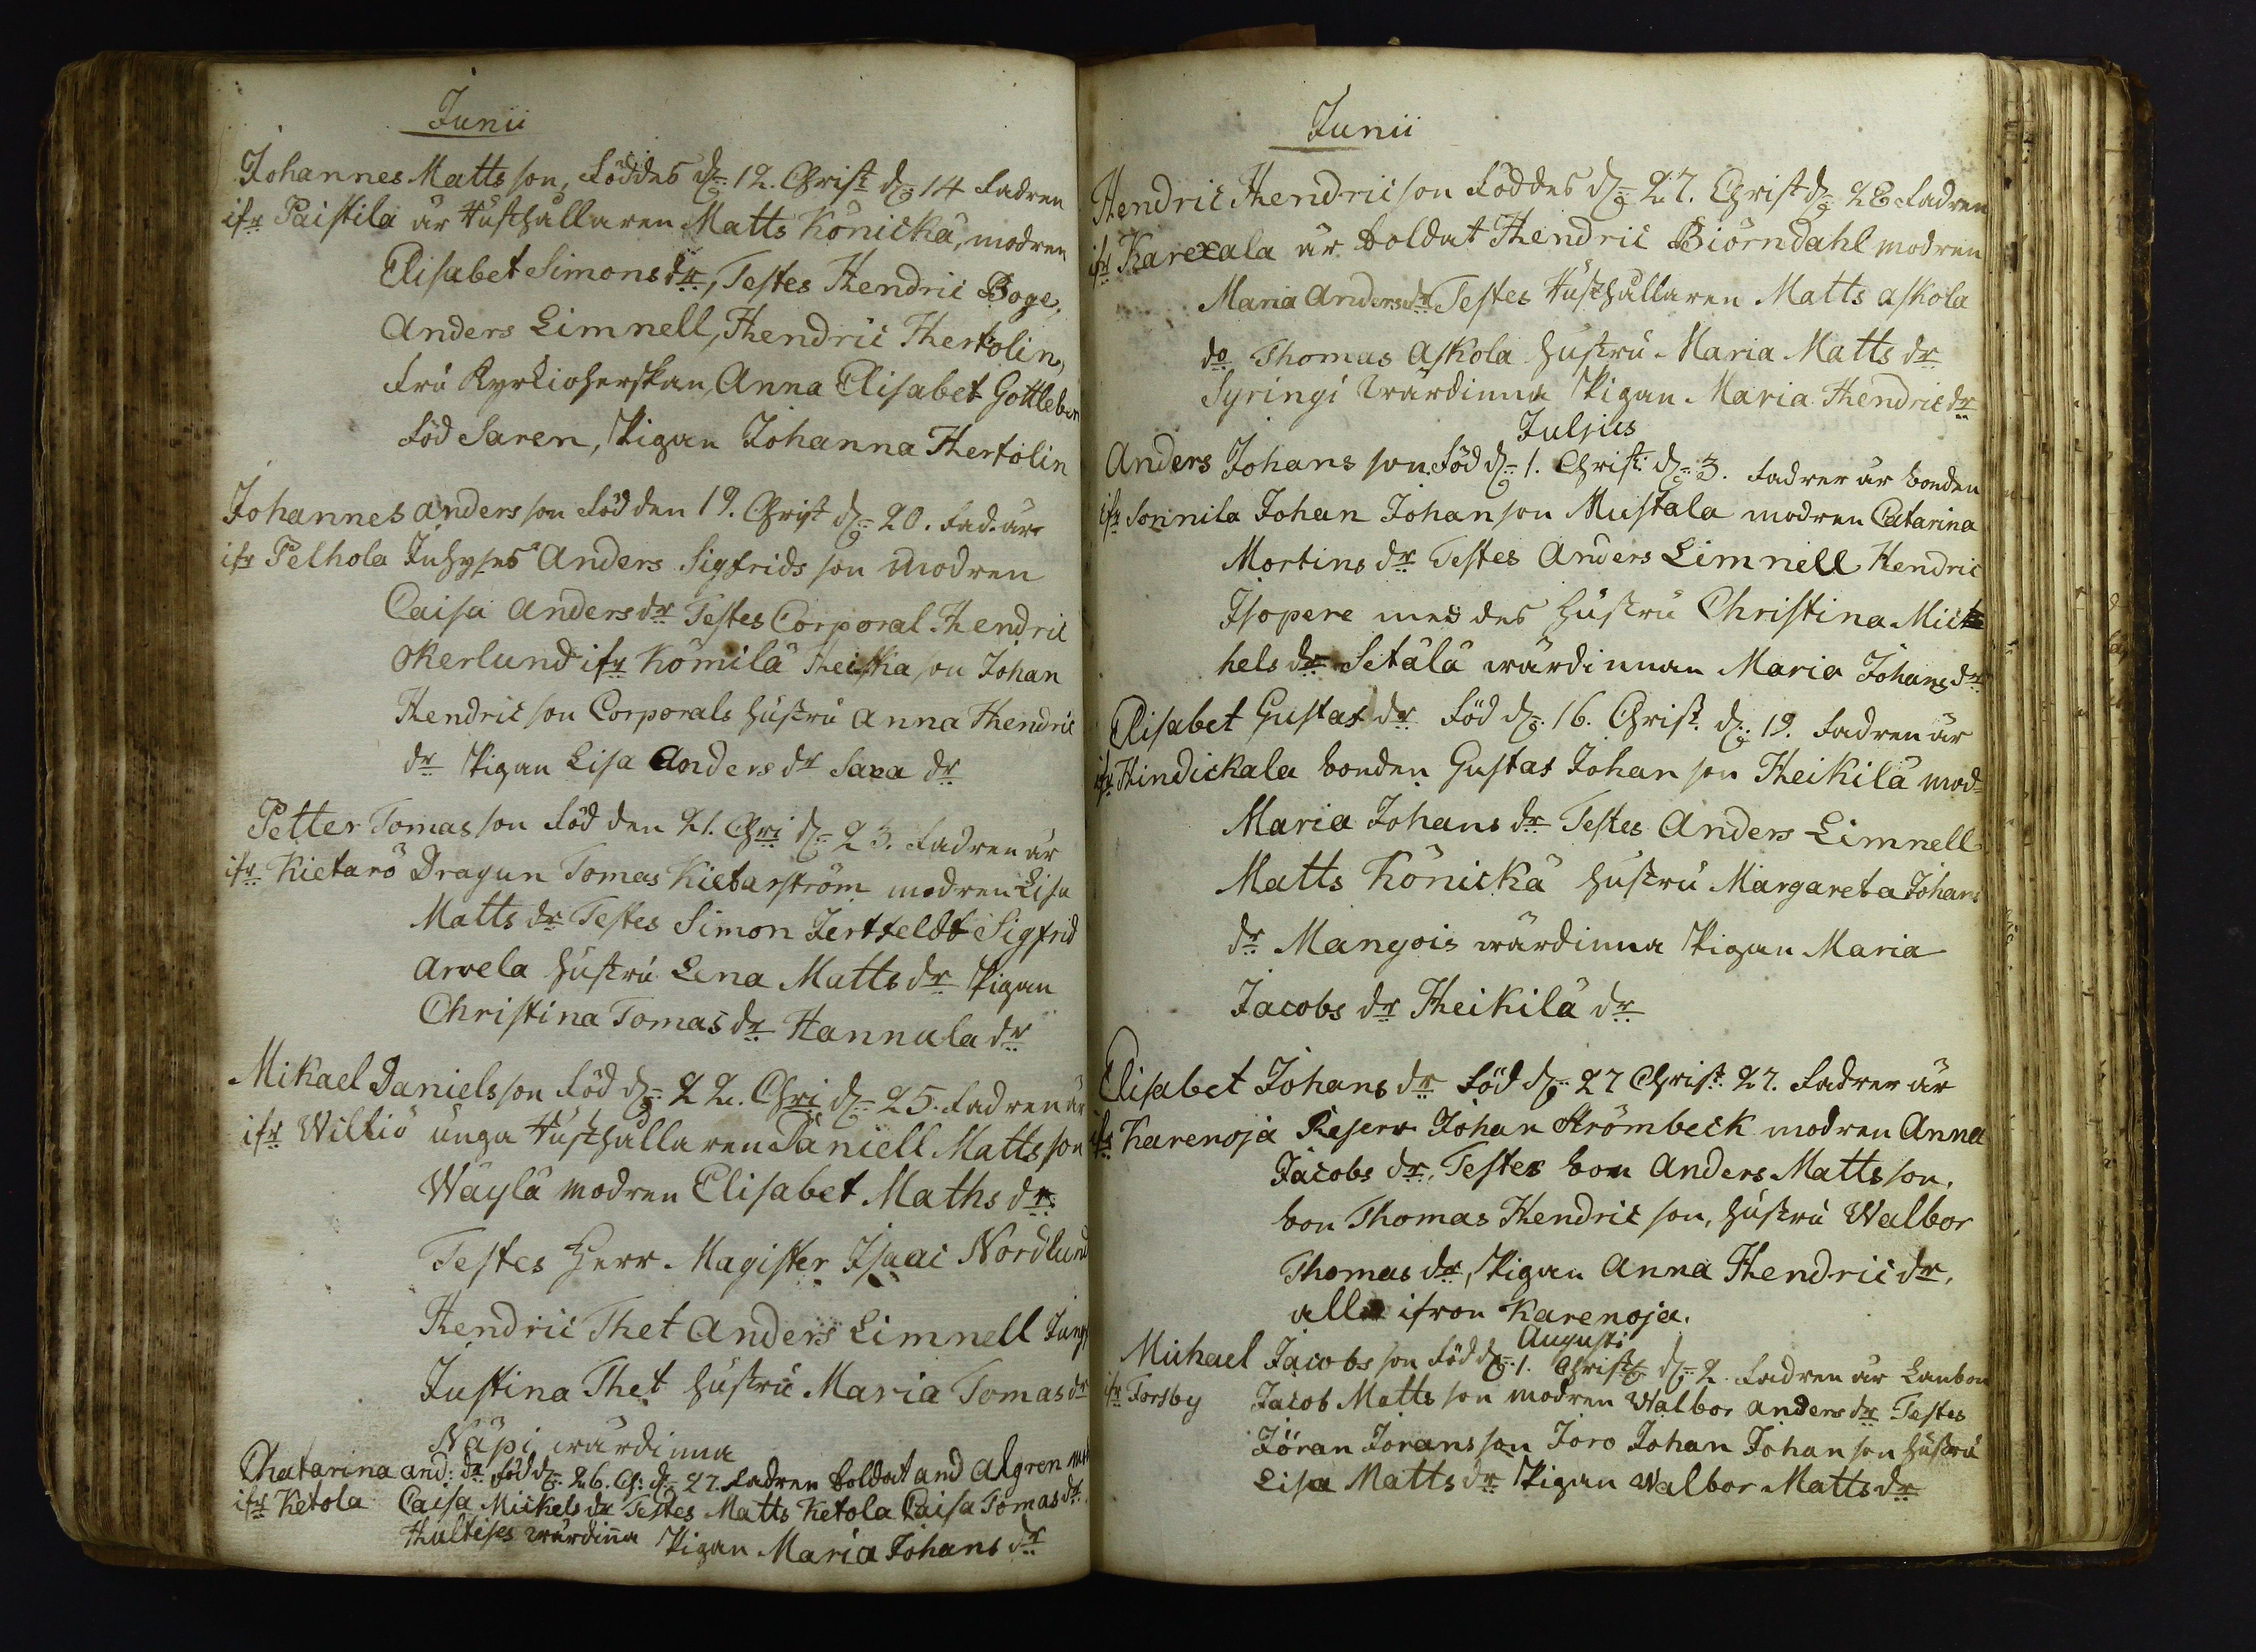 Junii
Johannes Matts son, föddes d. 12. Christ d. 14 fadren
ifr Paistila är Rusthållaren Matts Könickä, modren
Elisabet Simons dr, Testes Hendric Boge,
Anders Limnell, Hendric Hertolin,
fru Kyrkioherskan, Anna Elisabet Gottleben
född Saren, Pigan Johanna Hertolin
Johannes Anders son född den 19. Christ d. 20. Fad. är
ifr Pelhola Inhyses Anders Sigfrids son modren
Caisa Anders dr Testes Corporal Hendric
Okerlund ifr Kömilä Heiskia son Johan
Hendric son Corporals hustru Anna Hendric
dr Pigan Lisa Anders dr Saxa dr
Petter Tomas son född den 21. Chri d. 23. fadren är
ifr Kietarö Dragun Tomas Kietarström modren Lisa
Matts dr Testes Simon Jertfeldt Sigfrid
Arvela hustru Lena Matts dr Pigan
Christina Tomas dr Hannula dr
Mikael Daniels son född d. 22. Chri d. 25. fadren är
ifr Williö unga Rusthållaren Daniell Matts son
Wäylä modren Elisabet Maths dr
Testes Herr Magister Isaac Nordlund
Hendric Thet Anders Limnell Jungf
Justina Thet hustru Maria Tomas dr
Näpi wärdinna
Chatarina And: dr född d. 26. Ch: d. 27. fadren Soldat And Algren mod
ifr Ketola Caisa Mickels dr Testes Matts Ketola Caisa Tomas dr
Hultises wärdinna Pigan Maria Johans dr
Junii
Hendric Hendric son föddes d. 27. Christ d. 28 fadren
ifr Karexala är Soldat Hendric Biörndahl modren
Maria Anders dr Testes Rusthållaren Matts Askola
do Thomas Askola hustru Maria Matts dr
Syringi wärdinna Pigan Maria Hendric dr
Juljus
Anders Johans son född d. 1. Christ d. 3. fadren är bonden
ifr Sonnila Johan Johan son Mustala modren Catarina
Mortins dr Testes Anders Limnell Hendric
Isopere med des hustru Christina Mic
hels dr Setälä wärdinnan Maria Johans dr
Elisabet Gustaf dr född d. 16. Christ d. 19. fadren är
ifr Hindickala bonden Gustaf Johan son Heikilä mod
Maria Johans dr Testes Anders Limnell
Matts Könickä hustru Margareta Johans
dr Mangois wärdinna Pigan Maria
Jacobs dr Heikilä dr
Elisabet Johans dr född d. 27 Christ 27. fadren är
ifr Karenoja Reserv Johan Strömbeck modren Anna
Jacobs dr, Testes bon Anders Matts son,
bon Thomas Hendric son, hustru Walbor
Thomas dr, Pigan Anna Hendric dr,
alla ifron Karenoja.
Augusti
Michael Jacobs son född d. 1. Christ d. 2. fadren är Lanbon
ifr Forsby Jacob Matts son modren Walbor Anders dr Testes
Jöran Jörans son Joro Johan Johan son hustru
Lisa Matts dr Pigan Walbor Matts dr